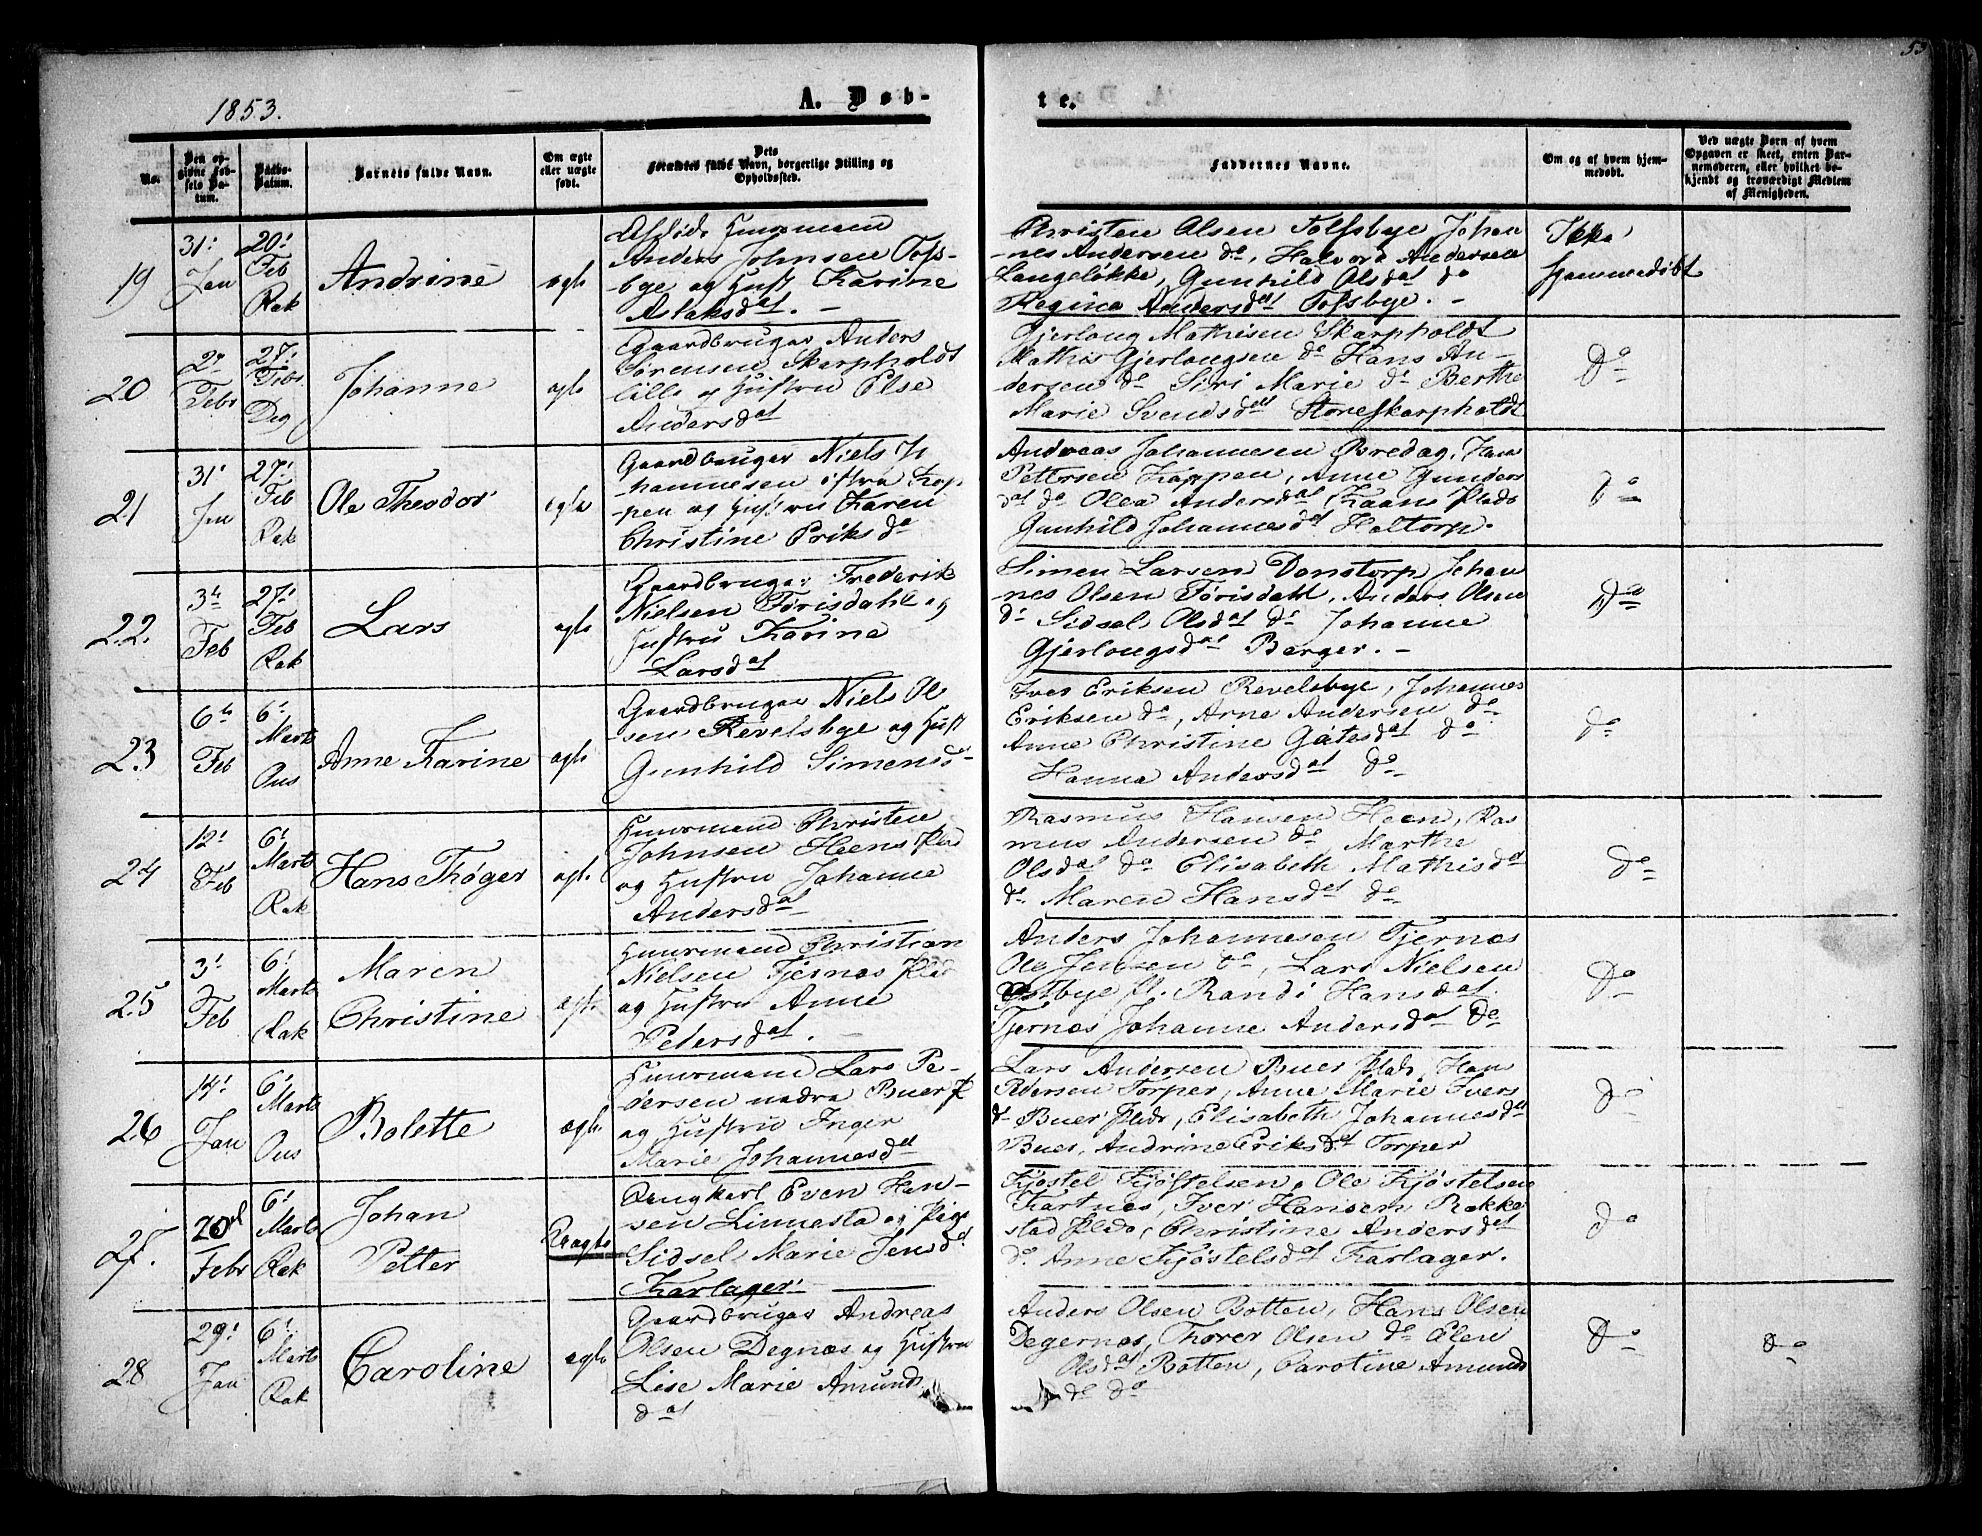 53
1853.
A. Døb-
te.
No.
Den opgivne Fødsels Datum.
Daabs-Datum.
Barnets fulde Navn.
Om ægte eller uægte født.
Dets Forældres fulde Navn, borgerlige Stilling og Opholdssted.
Faddernes Navne.
Om og af hvem hjemmedøbt.
Ved uægte Børn af hvem Opgaven er skeet, enten Barnemoderen, eller hvilket bekjendt og troværdigt Medlem af Menigheden.
19
31'
Jan
20'
Feb
Rak
Andrine
ægte
Afdøde Huusmand
Anders Johnsen Tofs-
bye og Hust Karine
Aslaksdat. -
Christen Olsen Tolfsbye Johan
-nes Andersen do, Halvord Andersen
Langeløkke, Gunhild Olsdat do
Regina Andersdat Tofsbye. -
Ikke
hjemmedøbt
20
2'
Febr
27'
Febr
Deg
Johanne
ægte
Gaardbruger Anders
Sørensen Skarpholdt
lille og Hustru Else
Andersdat
Gjerloug Mathisen Skarpholdt
Mathis Gjerlougsen do Hans An-
dersen do Siri Marie do Berthe
Marie Svendsdat Store Skarpholdt
do
21
31'
Jan
27'
Feb
Rak
Ole Theodor
ægte
Gaardbruger Niels Jo
hannesen østra Kop-
-pen og Hustru Karen
Christine Eriksda
Andreas Johannesen Bredag, Hans
Pettersen Koppen, Anne Gunders
dat do Olea Andersdat, Kaans Plads
Gunhild Johannesdat Haltorp.
do
22.
3de
Feb
27'
Feb
Rak
Lars
ægte
Gaardbruger Frederik
Nielsen Torisdahl og
Hustru Karine
Larsdat
Simen Larsen Donstorp Johan
nes Olsen Torisdahl, Anders Olsen
do Sidsel Olsdat do Johanne
Gjerlougsdat Berger. -
do
23
6te
Feb
6'
Marts
Ous
Anne Karine
ægte
Gaardbruger Niels Ol
sen Revelsbye og Hust
Gunhild Simensd
Iver Eriksen Revelsbye, Johannes
Eriksen do, Arne Andersen do
Anne Christine Gatesdat do
Hanna Andersdat do
do
24
12'
Feb
6'
Marts
Rak
Hans Thøger
ægte
Huusmand Christen
Johnsen Heens Plad
og Hustru Johanne
Andersdat
Rasmus Hansen Heen, Ras
mus Andersen do, Marthe
Olsdat do Elisabeth Mathisdat
do Maren Hansdat do
do
25
3'
Feb
6'
Marts
Rak
Maren
Christine
ægte
Huusmand Christian
Nielsen Tjernæs Plad
og Hustru Anne
Petersdat. -
Anders Johannesen Tjernæs
Ole Jensen do, Lars Nielsen
Østbye Pl. Randi Hansdat.
Tjernæs Johanne Andersdat do
do
26
14'
Jan
6'
Marts
Ous
Bolette
ægte
Huusmand Lars Pe-
dersen nedra Buer P
og Hustru Inger
Marie Johannesdat
Lars Andersen Buer Plads, Hans
Pedersen Torper, Anne Marie Ivers
d Buer Plads, Elisabeth Johannesdat
Buer, Andrine Eriksdat Torper
do
27.
20de
Febr
6'
Marts
Rak
Johan
Petter
Uægte
Ungkarl Even Han-
sen Linnestad og Pige
Sidsel Marie Jensdat
Karlager.
Kjøstel Kjøstelsen, Ole Kjøstelsen
Kartnæs, Iver Hansen Rakke
stad Plads, Christine Andersdat
do Anne Kjøstelsdat Karlager.
do
28
29'
Jan
6'
Marts
Rak
Caroline
ægte
Gaardbruger Andreas
Olsen Degnæs og Hustru
Lise Marie Amunds
dat
Anders Olsen Botten, Hans Olsen
Degernæs, Thorer Olsen do Elen
Olsdat Botten, Caroline Amunds
do do
do
do